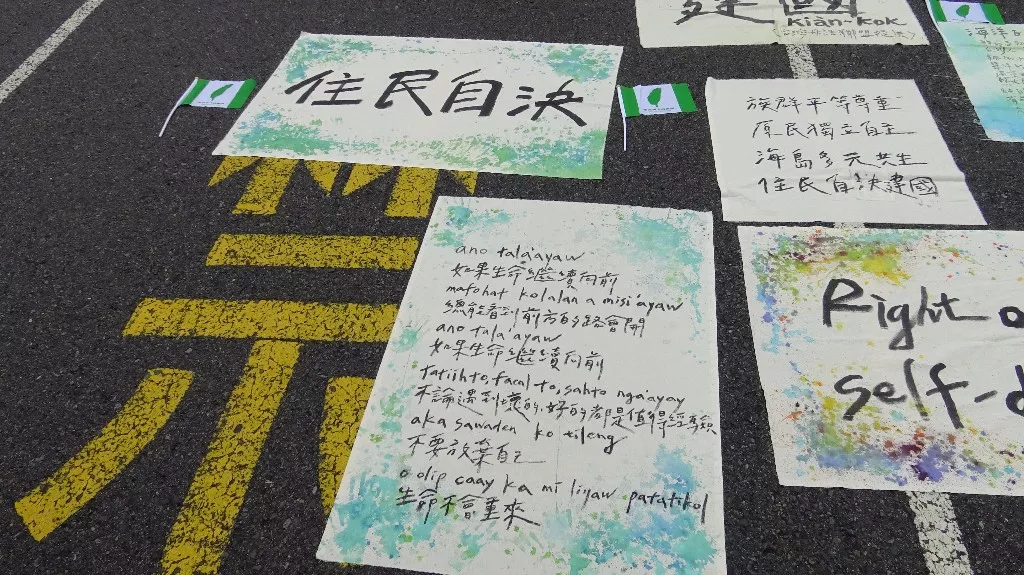 建國
kiàn-kok
住民自決
族群平等尊重
原民獨立自主
海島多元共生
住民自決建國
ano tala'ayaw
如果生命繼續向前
mafohat ko lalan a misi'ayaw
總能看到前方的路會開
ano tala'ayaw
如果生命繼續向前
tatiih to, facal to, sahto nga'ayay
不論遇到壞的、好的都是值得經驗
aka sawaden ko tileng
不要放棄自己
o olip caay ka mi liyaw patatikol
生命不會重來
Right
self-d
禁
海洋